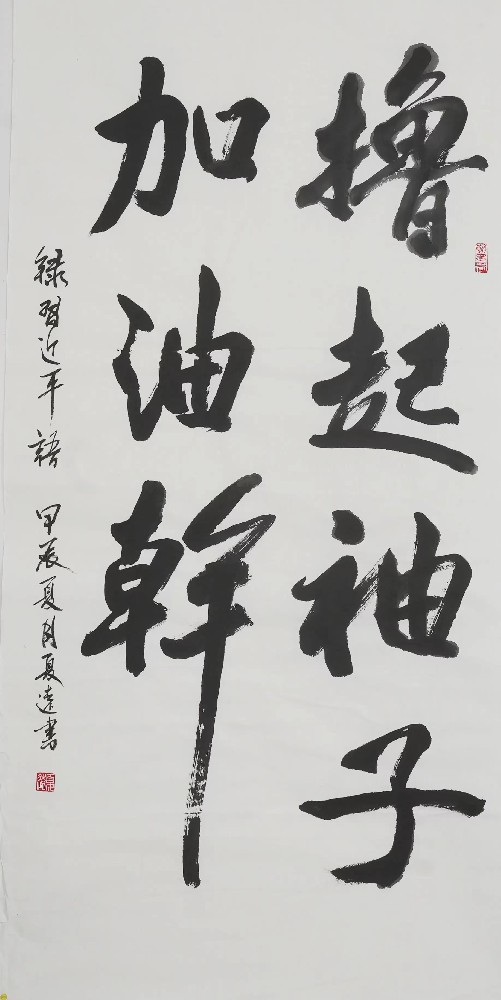 撸起袖子
加油幹
錄習近平語 甲辰夏月夏遠書